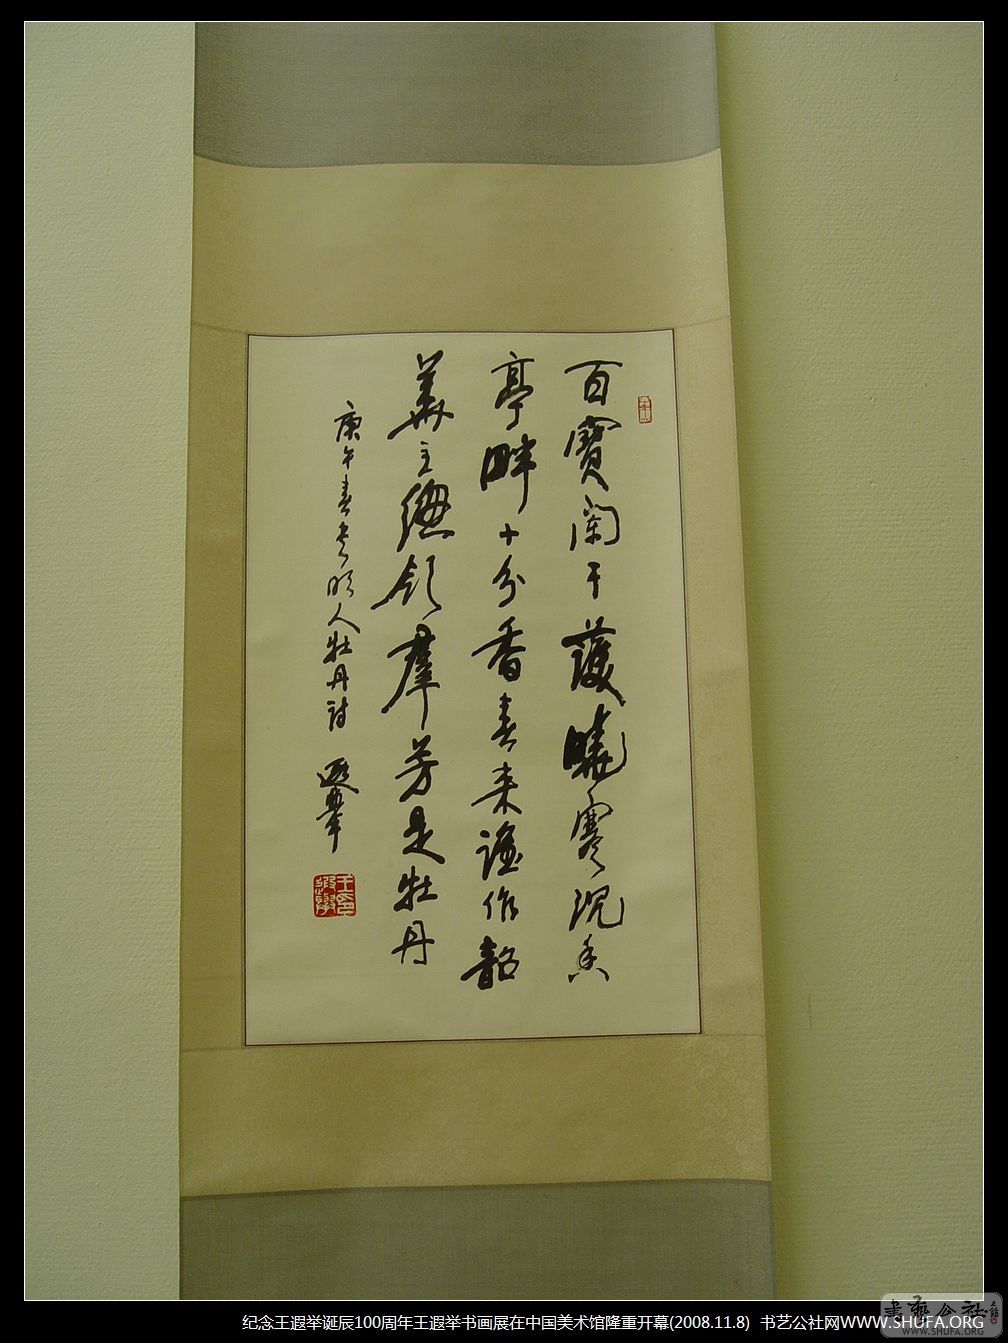 百寶闌干護曉寒沉香
亭畔十分香春来誰作韶
華主總領羣芳是牡丹
庚午春書明人牡丹詩 遐舉
王遐舉印
纪念王遐举诞辰100周年王遐举书画展在中国美术馆隆重开幕(2008.11.8) 书艺公社网WWW.SHUFA.ORG
書藝公社
WWW.SHUFA.ORG